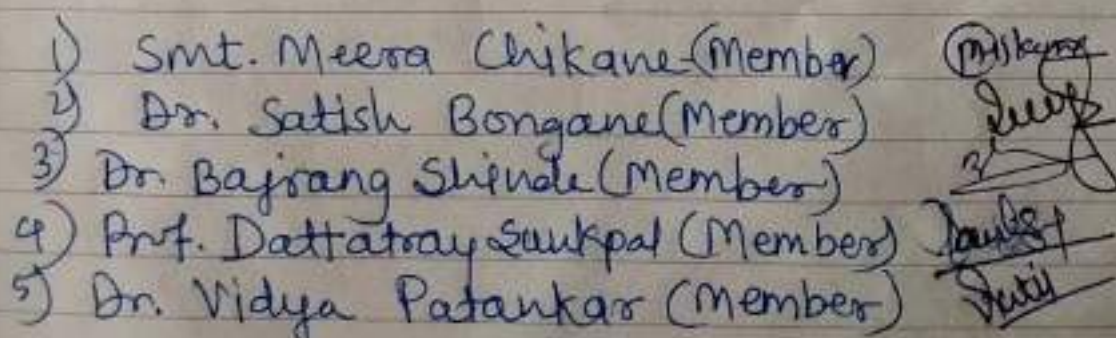 1) Smt. Meera Chikane (Member)
2) Dr. Satish Bongane (Member)
3) Dr. Bajrang Shinde (Member)
4) Prof. Dattatray Saukpal (Member)
5) Dr. Vidya Patankar (Member)